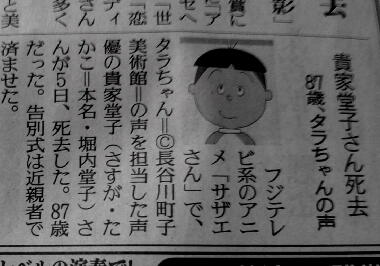 去
彰」
賞に
「ア
セへ
「世
「恋
ディ
さん
多く
と美
貴家堂子さん死去
87歳、タラちゃんの声
フジテレ
ビ系のアニ
メ「サザエ
さん」で、
タラちゃん=©長谷川町子
美術館=の声を担当した声
優の貴家堂子(さすが・た
かこ=本名・堀内堂子)さ
んが5日、死去した。87歳
だった。告別式は近親者で
済ませた。
ベルの演奏で!